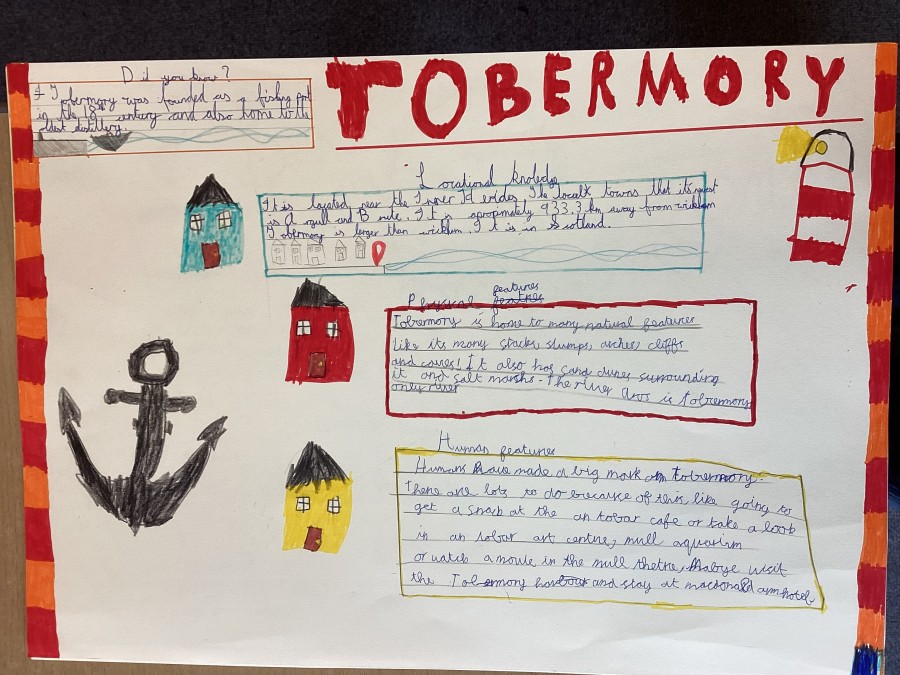 TOBERMORY
Did you know?
Tobermory was founded as a fishing port
in the 18th century and also home to the
oldest distillery.
Locational knoledge
It is located near the Inner Hebrides. The local towns that its nearest
is Argull and Bute. It is apropmately 933.3 km away from wickham
Tobermory is larger than wickham. It is in Scotland.
Physical features
Tobermory is home to many natural features
like its many stacks, slumps, arches, cliffs
and caves! It also has sand dunes surrounding
it and salt marshs - The river Aros is tobremorys
only river
Human features
Humans have made a big mark on tobermory.
There are lots to do because of this, like going to
get a snack at the an tobar cafe or take a look
in an tobar art centre, mull aquarium
or watch a movie in the mull thetre, Mabye visit
the Tobermory harbour and stay at macdonald arm hotel.